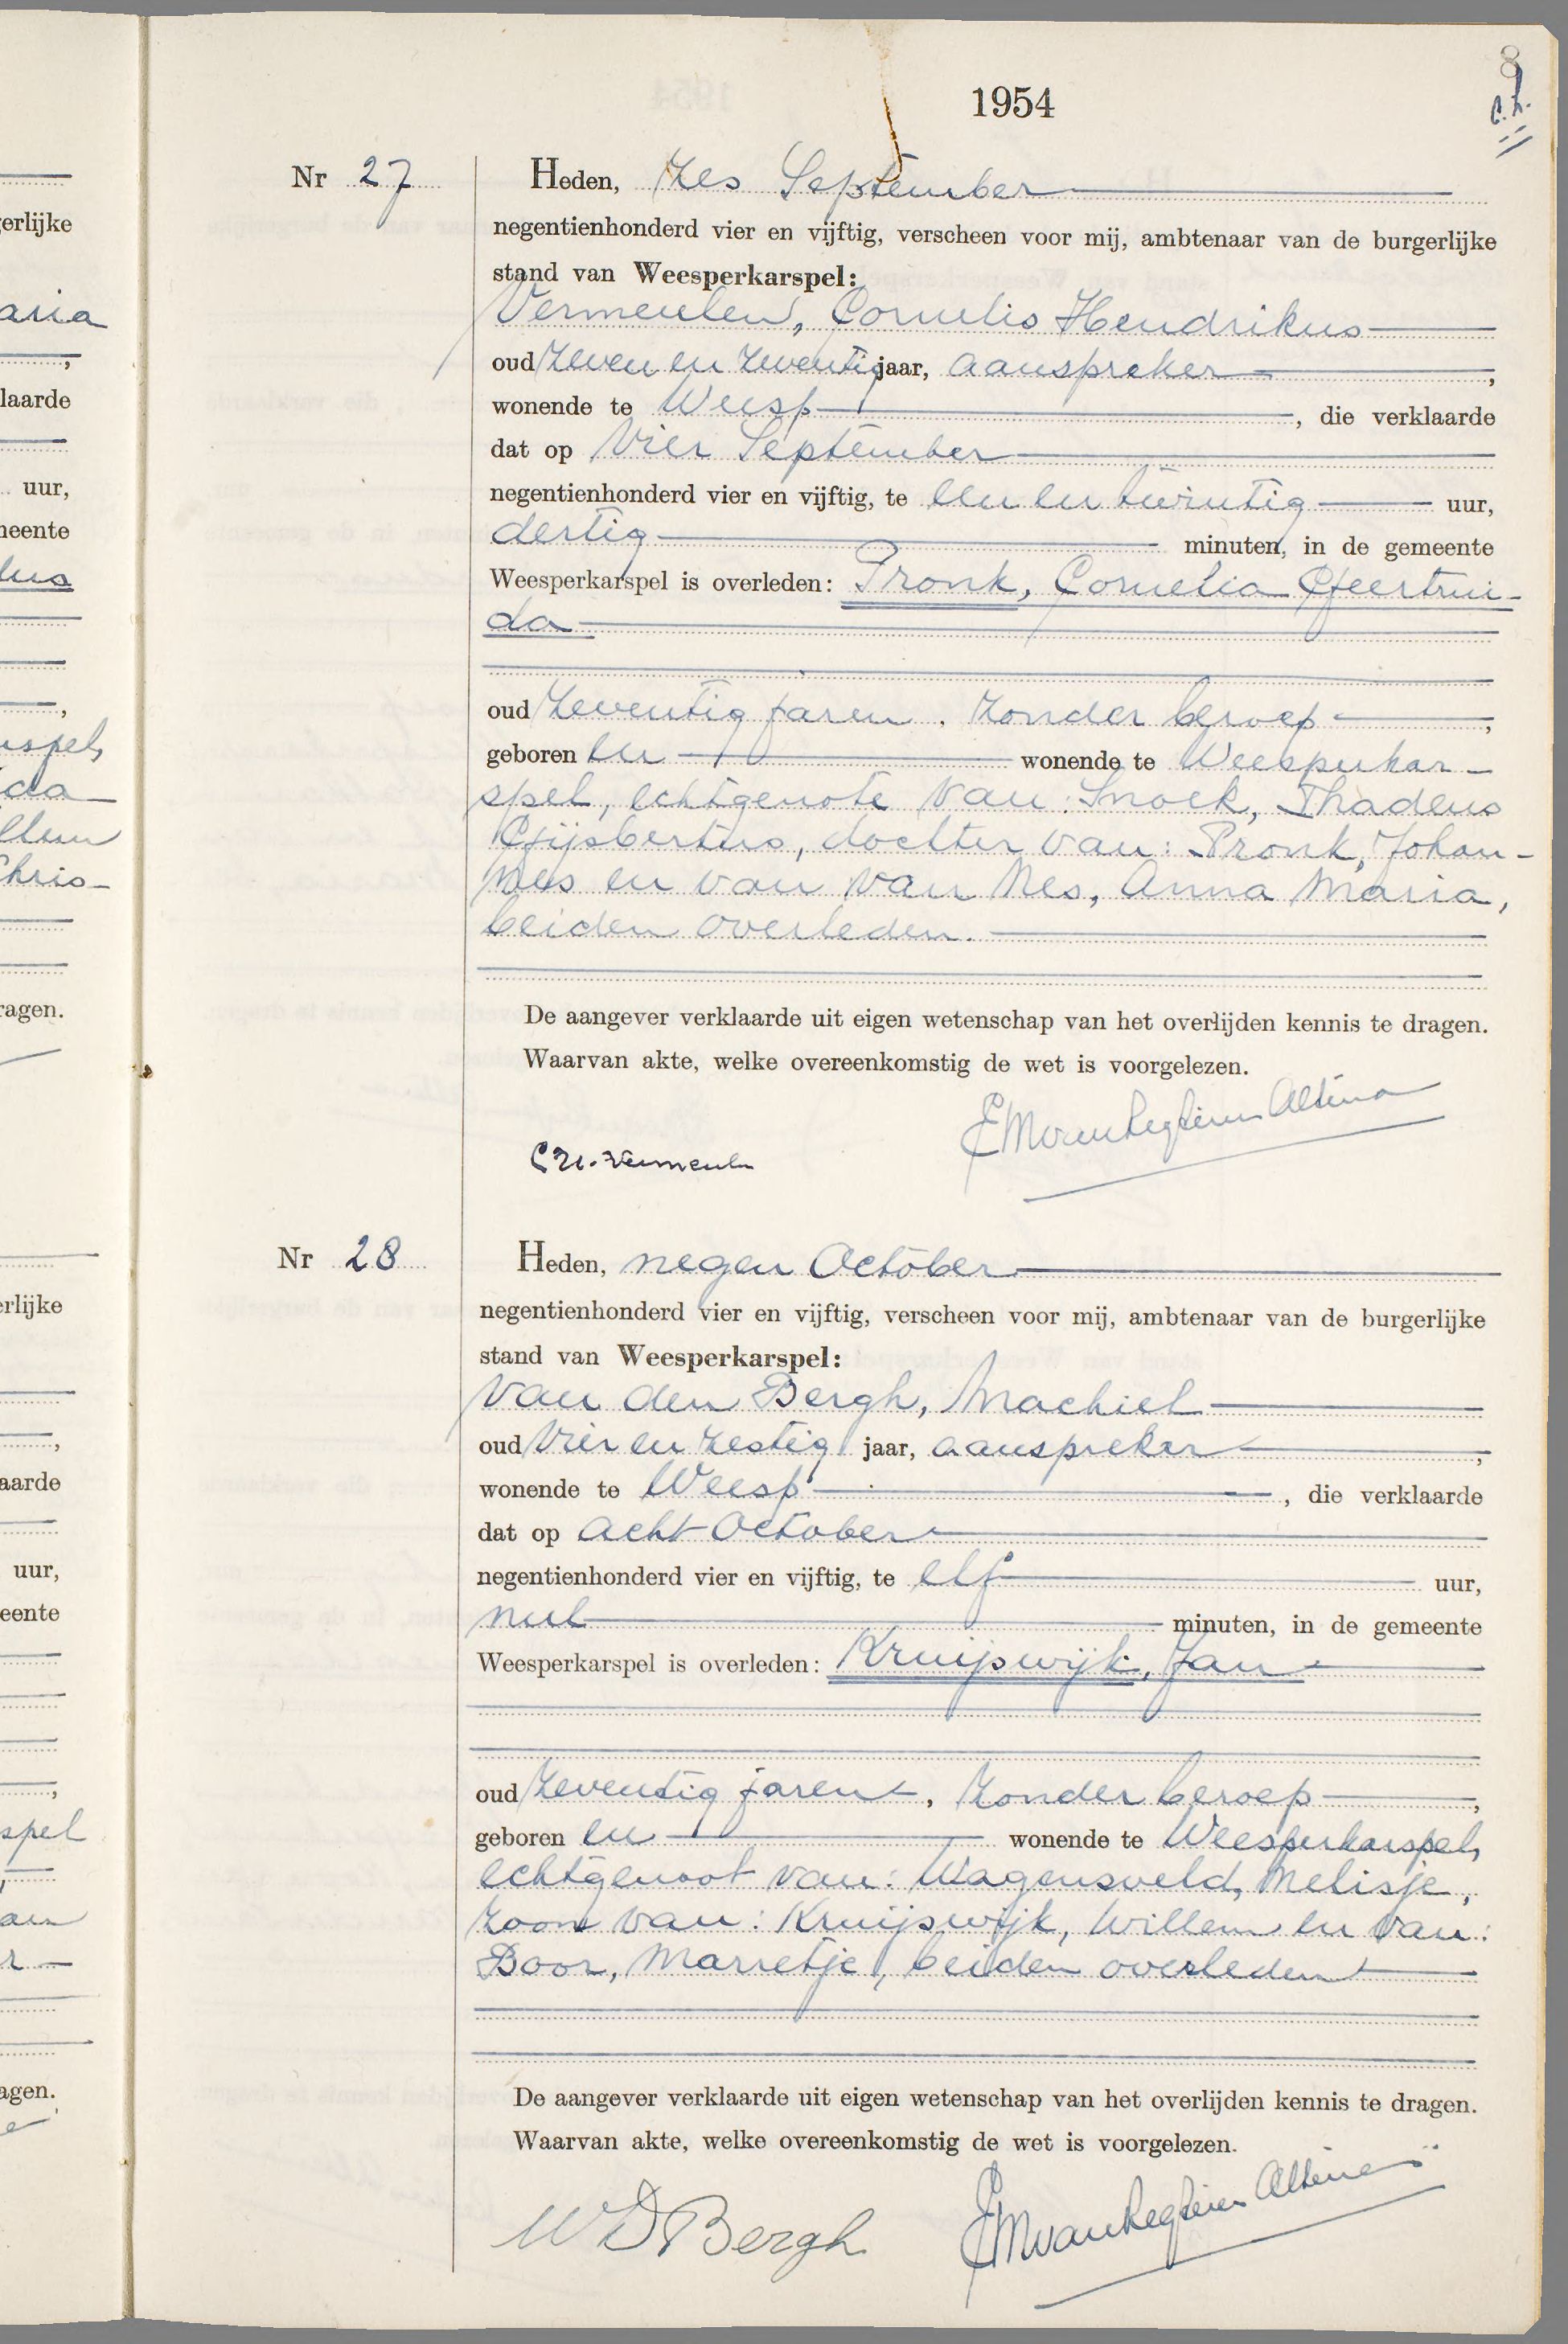 8
1954
Nr 27
Heden, zes September
negentienhonderd vier en vijftig, verscheen voor mij, ambtenaar van de burgerlijke
stand van Weesperkarspel:
Vermeulen, Cornelis Hendrikus
oud zeven en zeventig jaar, aanspreker,
wonende te Weesp, die verklaarde
dat op vier September
negentienhonderd vier en vijftig, te een en twintig uur,
dertig minuten, in de gemeente
Weesperkarspel is overleden: Pronk, Cornelia Geertrui-
da
oud zeventig jaren, zonder beroep,
geboren en wonende te Weesperkar-
spel, echtgenote van: Snoek, Thadeus
Gijsbertus, dochter van: Pronk, Johan-
nes en van van Nes, Anna Maria,
beiden overleden.
De aangever verklaarde uit eigen wetenschap van het overlijden kennis te dragen.
Waarvan akte, welke overeenkomstig de wet is voorgelezen.
Nr 28
Heden, negen October
negentienhonderd vier en vijftig, verscheen voor mij, ambtenaar van de burgerlijke
stand van Weesperkarspel:
van den Bergh, Machiel
oud vier en zestig jaar, aanspreker,
wonende te Weesp, die verklaarde
dat op acht October
negentienhonderd vier en vijftig, te elf uur,
nul minuten, in de gemeente
Weesperkarspel is overleden: Kruijswijk, Jan
oud zeventig jaren, zonder beroep,
geboren en wonende te Weesperkarspel,
echtgenoot van: Wagensveld, Melisje,
zoon van: Kruijswijk, Willem en van:
Boor, Marretje, beiden overleden
De aangever verklaarde uit eigen wetenschap van het overlijden kennis te dragen.
Waarvan akte, welke overeenkomstig de wet is voorgelezen.
Bergh